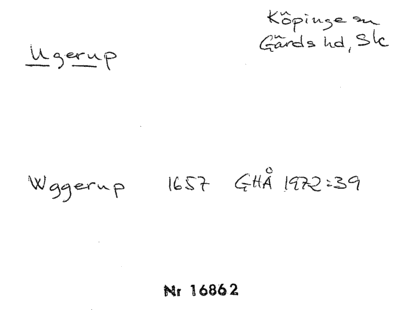 Köpinge sn
Gärds hd, Sk
Ugerup
Wggerup 1657 GHÅ 1972:39
Nr 16862